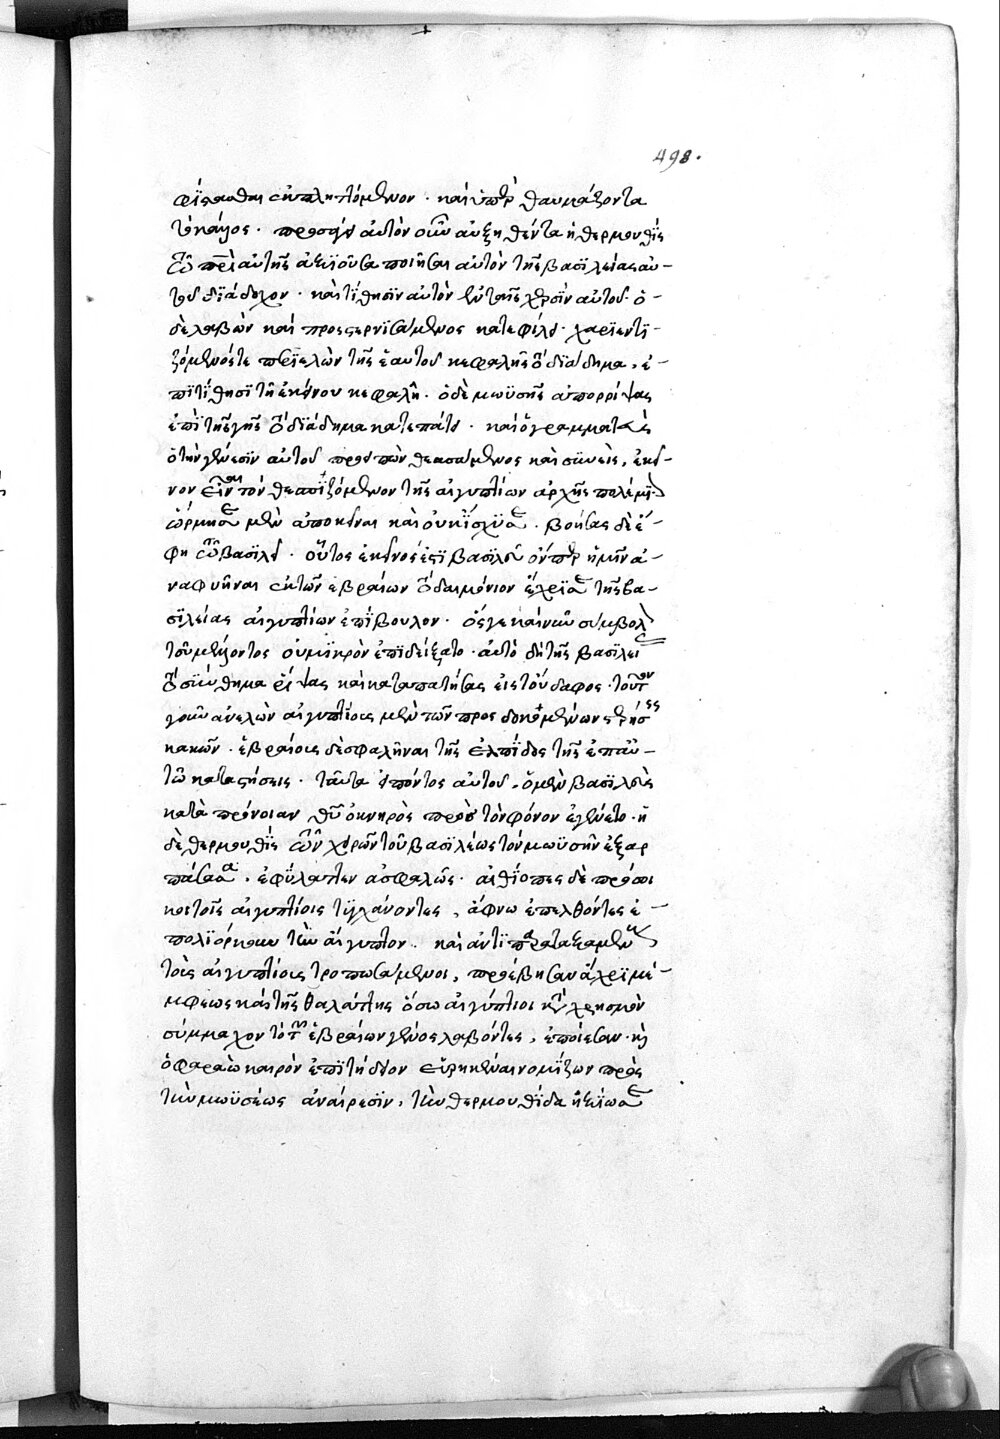 498.
φΐστασθαι ἐκπληττόμενον · καὶ ὑπὲρ θαυμάζοντα
τὸ κάλλος · προσάγει αὐτὸν οὖν αὐξηθέντα ἡ θερμουθὶς
τῶ πρὶ αὐτῆς ἀξιοῦσα ποιῆσαι αὐτὸν τῆς βασιλείας αὐ-
τοῦ διάδοχον · καὶ τίθησιν αὐτὸν ἐν ταῖς χερσὶν αὐτοῦ · ὁ
δὲ λαβὼν καὶ προσστερνισάμενος κατεφίλει · χαριεντι-
ζόμενός τε περιελὼν τῆς ἑαυτοῦ κεφαλῆς τὸ διάδημα, ἐ-
πιτίθησι τῇ ἐκείνου κεφαλῇ · ὁ δὲ μωϋσῆς ἀπορρίψας
ἐπὶ τῆς γῆς τὸ διάδημα κατεπάτει · καὶ ὁ γραμματεὺς
ὁ τὴν γένεσιν αὐτοῦ προειπὼν θεασάμενος καὶ συνεὶς, ἐκεῖ-
νον εἶναι τὸν θεσπιζόμενον τῆς αἰγυπτίων ἀρχῆς πολέμιον
ὥρμησε μὲν ἀποκτεῖναι καὶ οὐκ ἴσχυσε · βοήσας δὲ ἔ-
φη τῶ βασιλεῖ · οὗτος ἐκεῖνός ἐστι βασιλεῦ ὃν ὑπὲρ ἡμῖν ἀ-
ναφυῆναι ἐκ τῶν ἑβραίων τὸ δαιμόνιον ἔχρησε τῆς βα-
σιλείας αἰγυπτίων ἐπίβουλον · ὅς γε καὶ νῦν σύμβολον
τοῦ μέλλοντος οὐ μικρὸν ἐπιδείξατο · αὐτὸ δὴ τῆς βασιλείας
τὸ σύνθημα ῥίψας καὶ καταπατήσας εἰς τοὔδαφος · τοῦτον
γοῦν ἀνελὼν αἰγυπτίοις μὲν τῶν προσδοκωμένων στερήσεις
κακῶν · ἑβραίοις δὲ σφαλῆναι τῆς ἐλπίδος τῆς ἐπ' αὐ-
τῶ καταστήσεις · ταῦτα εἰπόντος αὐτοῦ, ὁ μὲν βασιλεὺς
κατὰ πρόνοιαν θυ ὀκνηρὸς πρὸς τὸν φόνον ἐγένετο · ἡ
δὲ θερμουθὶς τῶν χειρῶν τοῦ βασιλέως τὸν μωϋσῆν ἐξαρ
πάσασα, ἐφύλαττεν ἀσφαλῶς · αἰθίοπες δὲ πρόσοι
κοι τοῖς αἰγυπτίοις τυγχάνοντες, ἄφνω ἐπελθόντες ἐ-
πολιόρκουν τὴν αἴγυπτον · καὶ ἀντιπαραταξαμένους
τοὺς αἰγυπτίους τροπωσάμενοι, προέβησαν ἄχρι μέ-
μφεως καὶ τῆς θαλάττης ὅσω αἰγύπτιοι κατὰ χρησμὸν
σύμμαχον τὸ τῶν ἑβραίων γένος λαβόντες, ἐποίεσαν · καὶ
ὁ φαραὼ καιρὸν ἐπιτήδειον εὑρηκέναι νομίζων πρὸς
τὴν μωϋσέως ἀναίρεσιν, τὴν θερμουθίδα ἠξίωσε